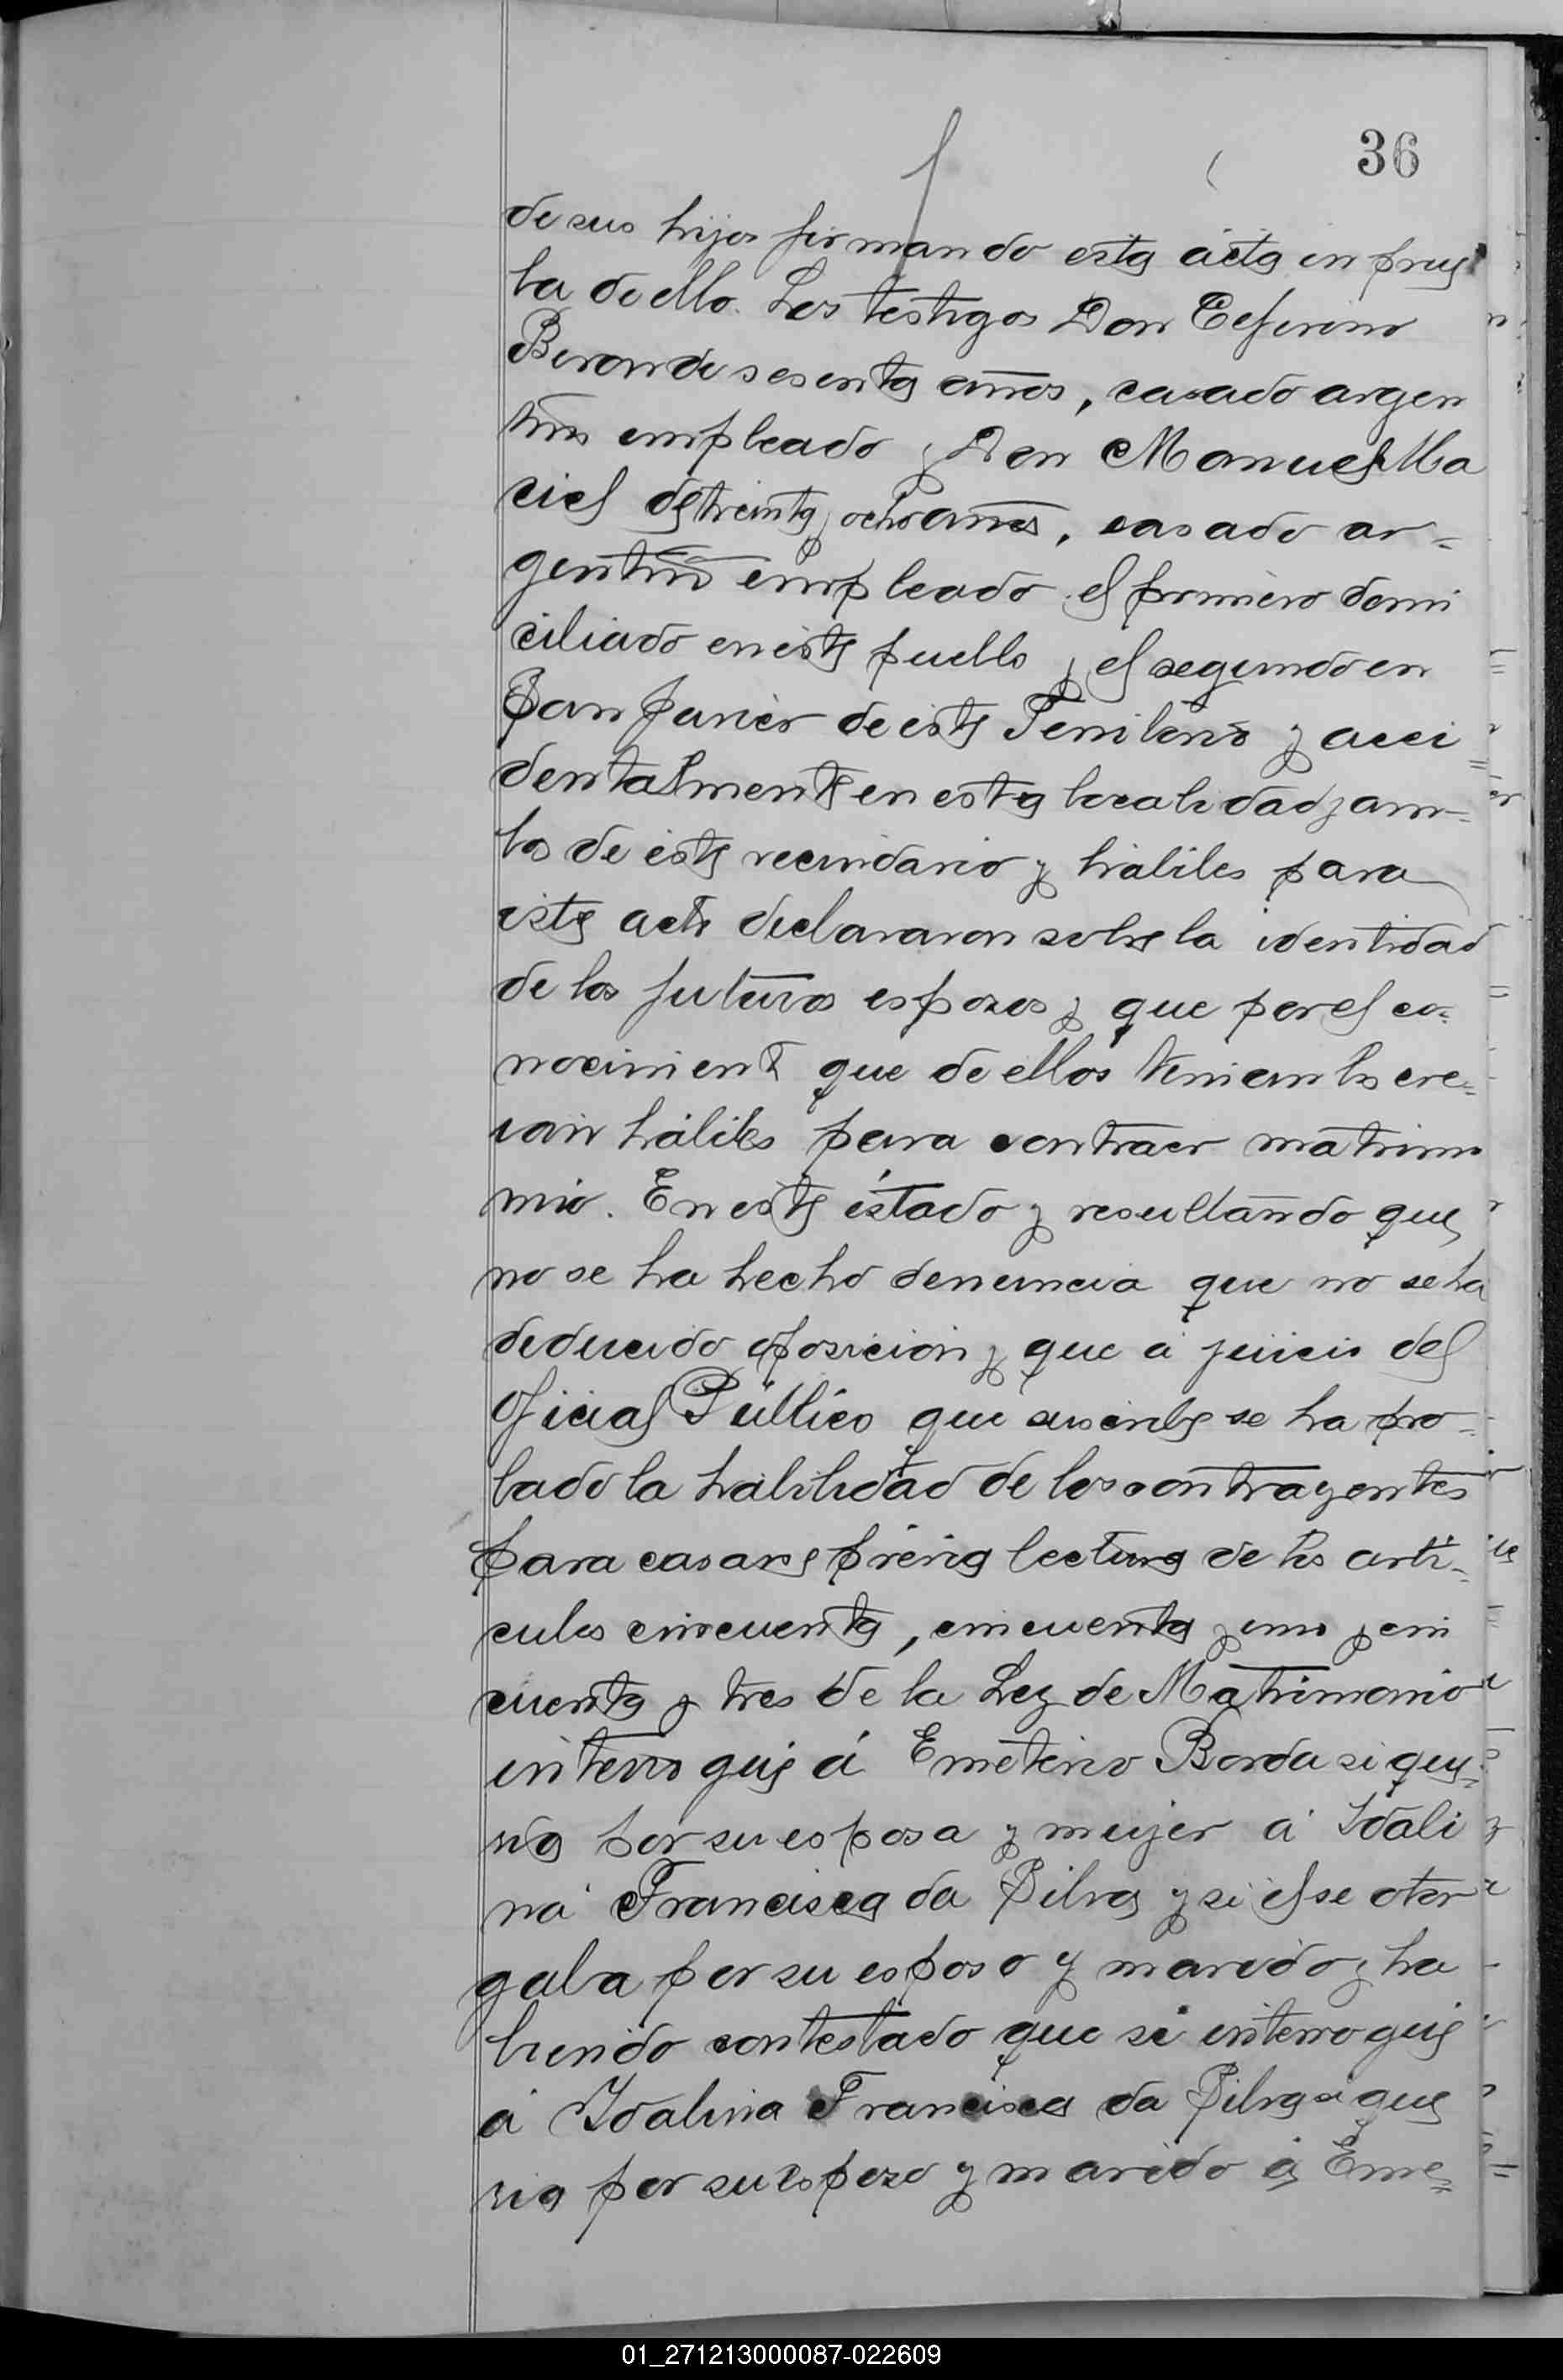 36
de sus hijos firmando esta acta en prue
ba de ello. Los testigos Don Ceferino
Beron de sesenta años, casado argen
tino empleado y Don Manuel Ma
ciel de treinta y ocho años, casado ar-
gentino empleado el primero domi
ciliado en este pueblo y el segundo en
San Javier de este Territorio y acci
dentalmente en esta localidad, am-
bos de este vecindario y hábiles para
este acto declararon sobre la identidad
de los futuros esposos y que por el co-
nocimiento que de ellos tenian los cre-
ian hábiles para contraer matrimo
nio. En este estado y resultando que
no se ha hecho denuncia que no se ha
deducido oposición y que á juicio del
Oficial Público que suscribe se ha pro-
bado la habilidad de los contrayentes
para casarse prévia lectura de los artí-
culos cincuenta, cincuenta y uno y cin
cuenta y tres de la Ley de Matrimonio
interrogué á Emeterio Borda si que-
ria por su esposa y mujer á Idali
na Francisca da Silva y si él se otor
gaba por su esposo y marido y ha
biendo contestado que si interrogué
á Idalina Francisca da Silva si que
ria por su esposo y marido á Eme-
01_271213000087-022609